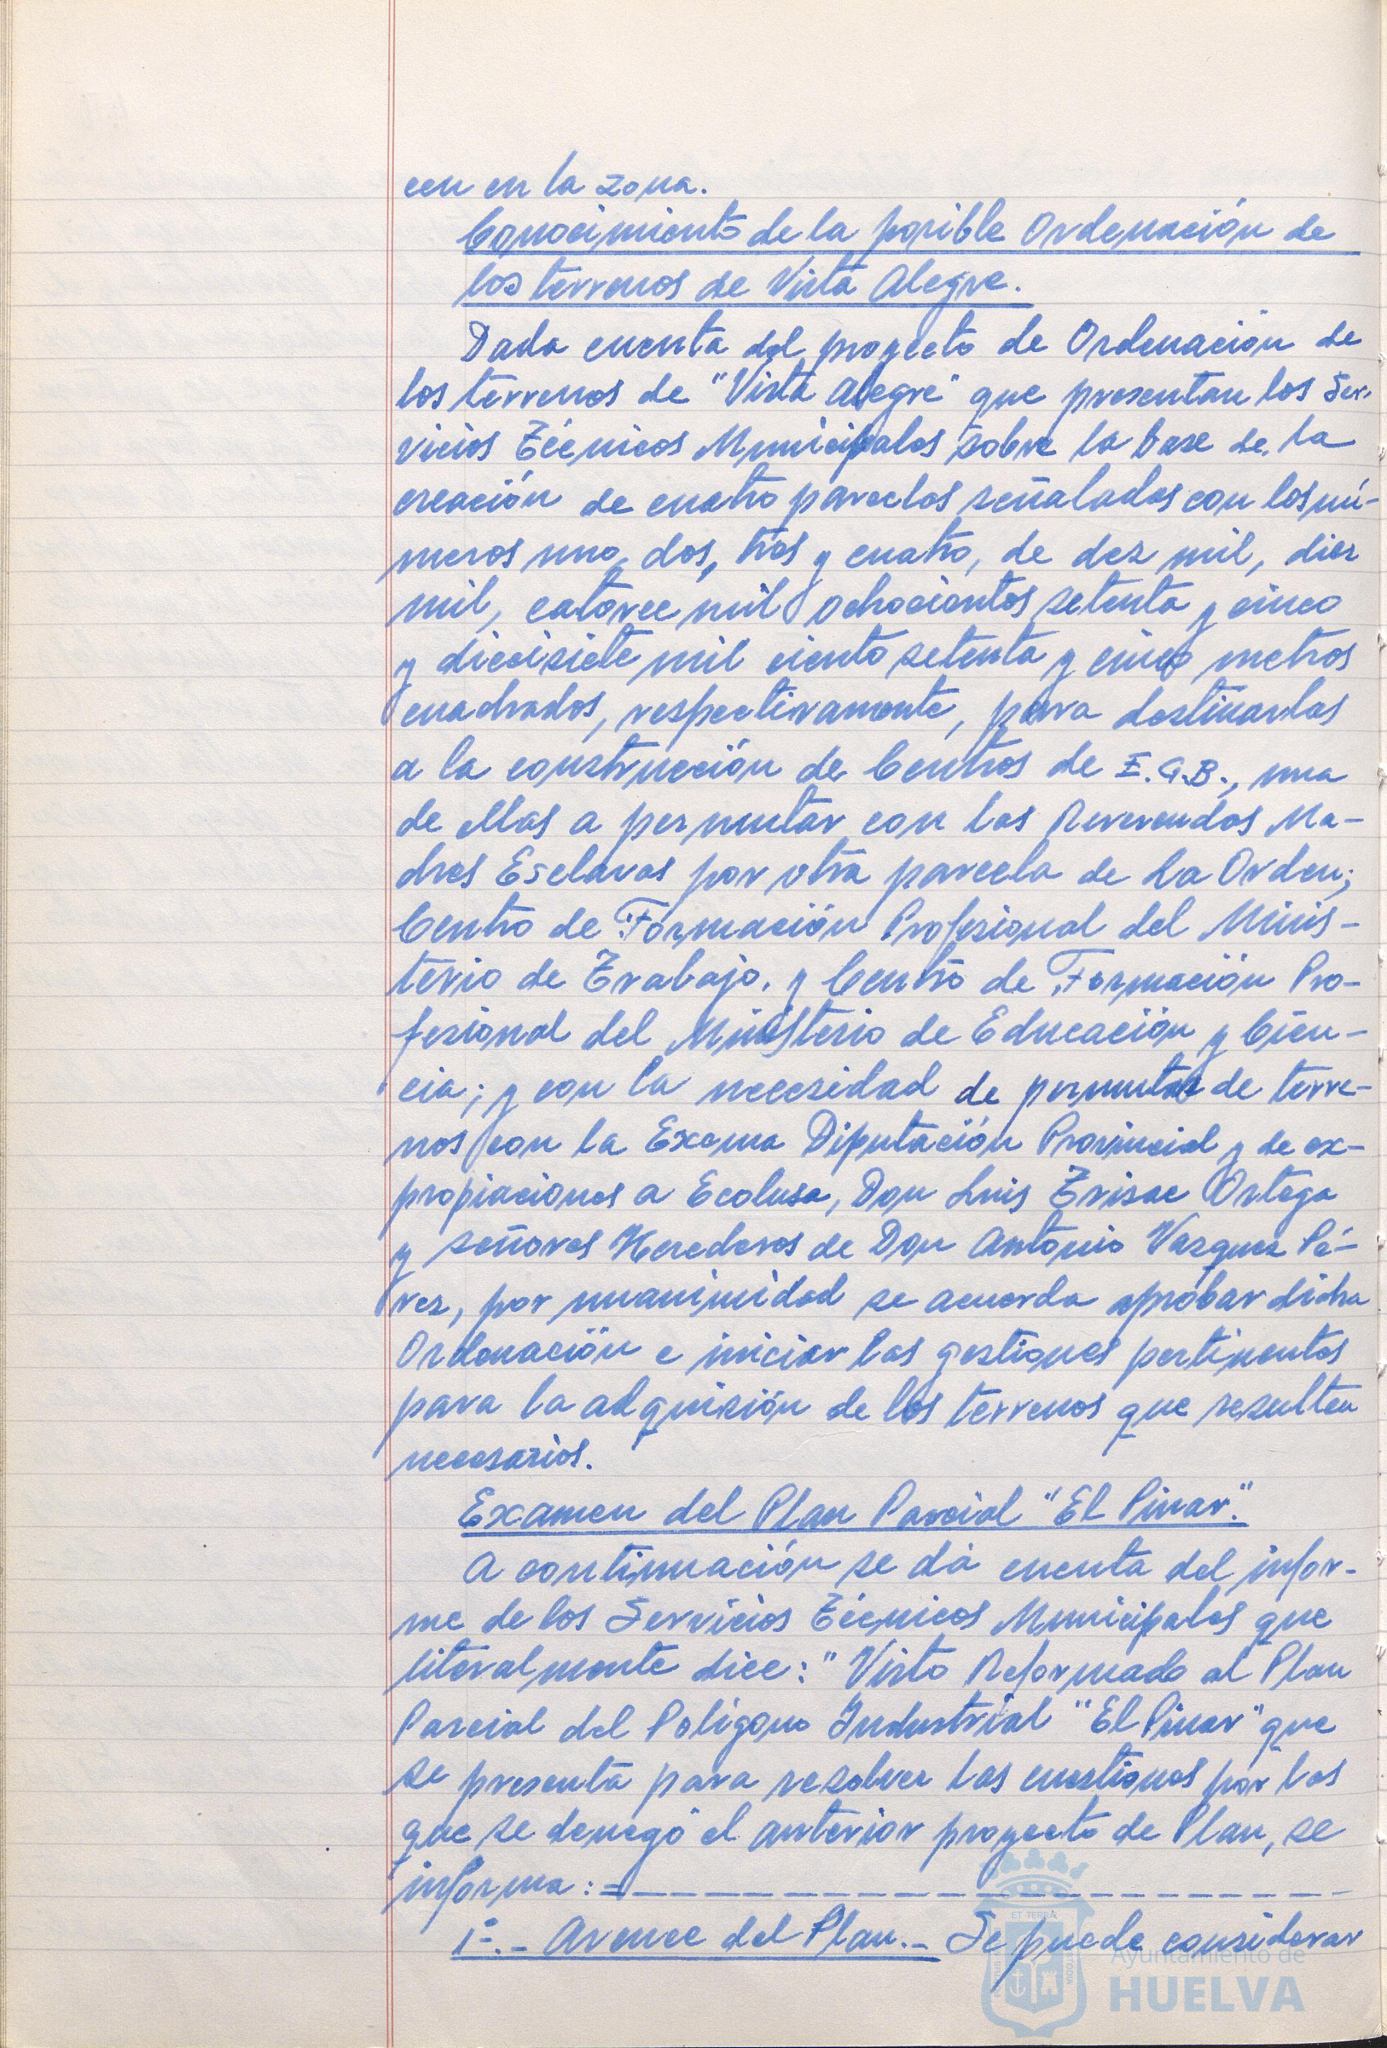 cen en la zona.
Conocimiento de la posible Ordenación de
los terrenos de Vista Alegre.
Dada cuenta del proyecto de Ordenación de
los terrenos de "Vista Alegre" que presentan los Ser-
vicios Técnicos Municipales sobre la base de la
creación de cuatro parcelas señaladas con los nú-
meros uno, dos, tres y cuatro, de dez mil, diez
mil, catorce mil ochocientos setenta y cinco
y diecisiete mil ciento setenta y cinco metros
cuadrados, respectivamente, para destinarlas
a la construcción de Centros de E.G.B., una
de ellas a permutar con las Reverendas Ma-
dres Esclavas por otra parcela de La Orden;
Centro de Formación Profesional del Minis-
terio de Trabajo, y Centro de Formación Pro-
fesional del Ministerio de Educación y Cien-
cia; y con la necesidad de permutas de terre-
nos con la Excma Diputación Provincial y de ex-
propiaciones a Ecolusa, Don Luis Trisac Ortega
y señores Herederos de Don Antonio Vazquez Pé-
rez, por unanimidad se acuerda aprobar dicha
Ordenación e iniciar las gestiones pertinentes
para la adquisión de los terrenos que resulten
necesarios.
Examen del Plan Parcial "El Pinar".
A continuación se dá cuenta del infor-
me de los Servicios Técnicos Municipales que
literalmente dice: "Visto Reformado al Plan
Parcial del Polígono Industrial "El Pinar" que
se presenta para resolver las cuestiones por las
que se denegó el anterior proyecto de Plan, se
informa: =
1º.- Avance del Plan.- Se puede considerar
ET TERRÆ
Ayuntamiento de
HUELVA